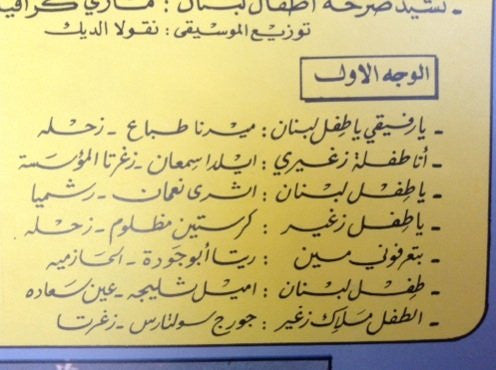 ـ نشيد صرخة اطفال لبنان : ماري
توزيع الموسيقى : نقولا الديك
الوجه الاول
ـ يارفيقي ياطفل لبنان : ميرنا طباع ـ زحله
ـ أنا طفلة زغيري : ايلدا سمعان ـ زغرتا المؤسسة
ـ ياطفل لبنان : اشرى نعمان ـ رشميا
ـ ياطفل زغير : كرستين مظلوم ـ زحله
ـ بتعرفوني مين : ريتا أبوجودة ـ الحازميه
ـ طفل لبنان : اميل شليجه ـ عين سعاده
ـ الطفل ملاك زغير : جورج سولتارس ـ زغرتا